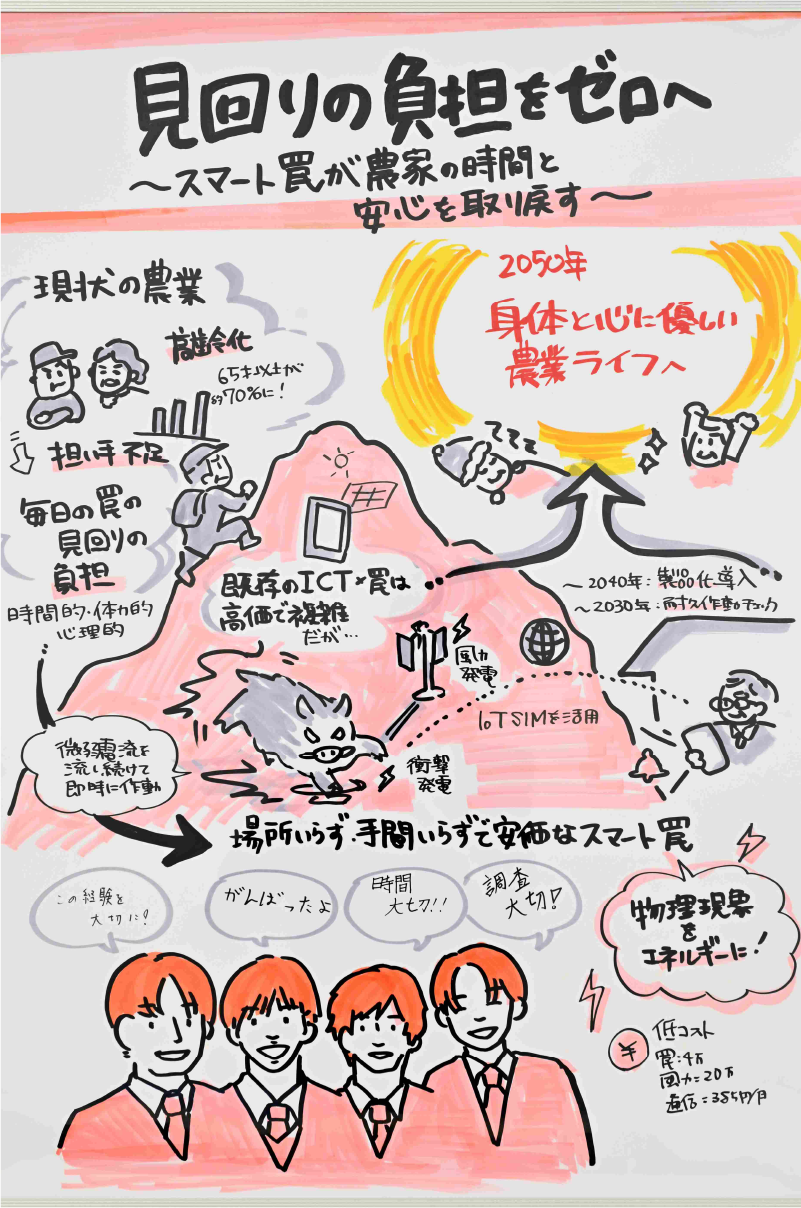 見回りの負担をゼロへ
～スマート罠が農家の時間と
安心を取り戻す～
現状の農業
高齢化
65才以上が
約70%に!
担い手不足
毎日の罠の
見回りの
負担
時間的・体力的
心理的
2050年
身体と心に優しい
農業ライフへ
てててて
既存のICT×罠は
高価で複雑
だが…
～2040年:製品化導入
～2030年:耐久作動チェック
風力
発電
IoT SIMを活用
衝撃
発電
微弱電流を
流し続けて
即時に作動
場所いらず・手間いらずで安価なスマート罠
この経験を
大切に!
がんばったよ
時間
大切!!
調査
大切!
物理現象
を
エネルギーに!
¥
低コスト
罠:4万
風力=20万
通信=385円/月